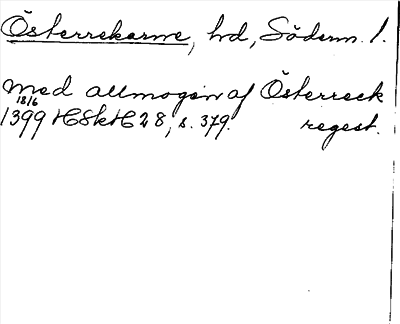 Österrekarne, hd, Söderm. l.
Med allmogen af Österreck
18/6
1399 HSkH 28, s. 379. regest.